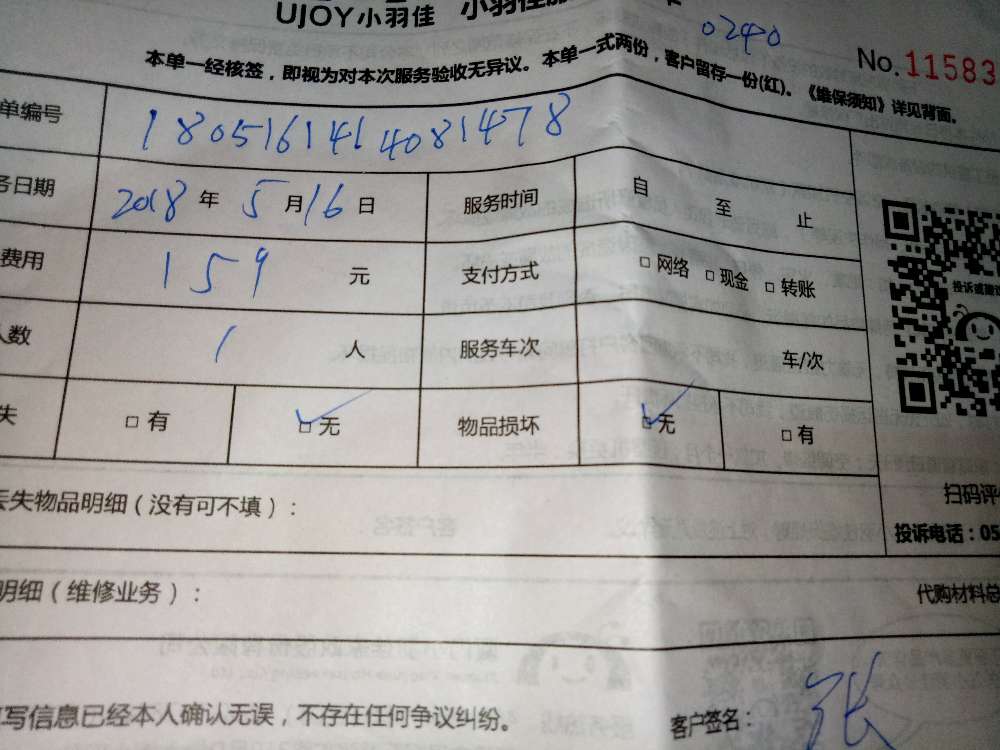 UJOY小羽佳 小羽佳
0240
No.11583
本单一经核签，即视为对本次服务验收无异议。本单一式两份，客户留存一份(红)。《维保须知》详见背面。
单编号 1805161414081478
务日期 2018 年 5 月 16 日 服务时间 自 至 止
费用 159 元 支付方式 □ 网络 □ 现金 □ 转账
人数 1 人 服务车次 车/次
失 □ 有 ☑ 无 物品损坏 ☑ 无 □ 有
投诉或建议
扫码评
丢失物品明细（没有可不填）：
投诉电话：05
明细（维修业务）： 代购材料总
填写信息已经本人确认无误，不存在任何争议纠纷。 客户签名： 张